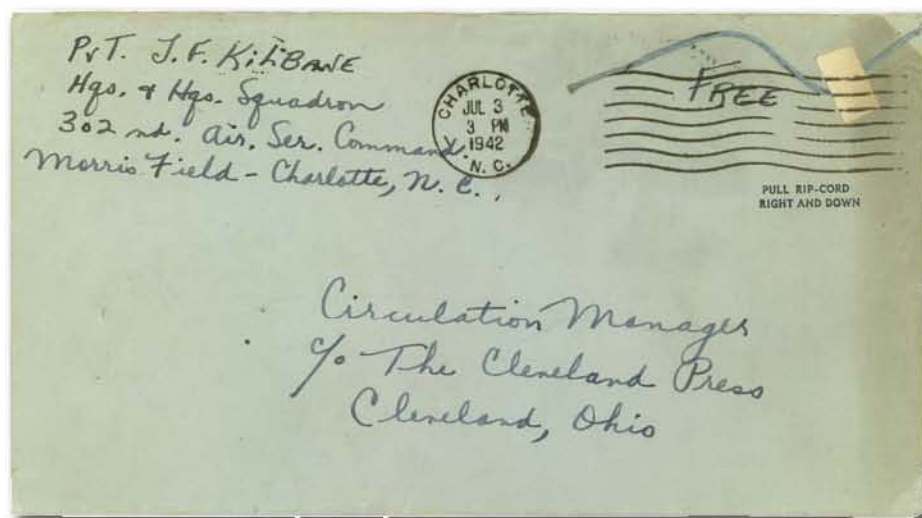 PVT. J. F. KILBANE
Hqs. & Hqs. Squadron
302 nd. Air. Ser. Command.
Morris Field - Charlotte, N. C.,
CHARLOTTE
JUL 3
3 PM
1942
N. C.
FREE
PULL RIP-CORD
RIGHT AND DOWN
Circulation Manager
c/o The Cleveland Press
Cleveland, Ohio